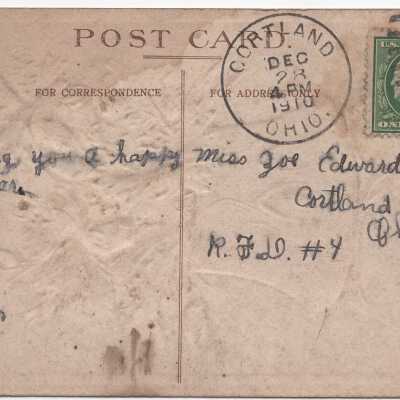 POST CARD.
CORTLAND
DEC
28
4 PM
1910
OHIO.
FOR CORRESPONDENCE
FOR ADDRESS ONLY
g you a happy
ar.
Miss Zoe Edward
Cortland
R.F.D. #4
U.S.
ONE